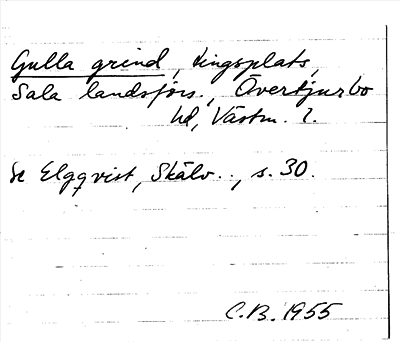 Gulla grind, tingsplats,
Sala landsförs., Övertjurbo
hd, Västm. l.
Se Elgqvist, Skälv.., s. 30.
C.B. 1955